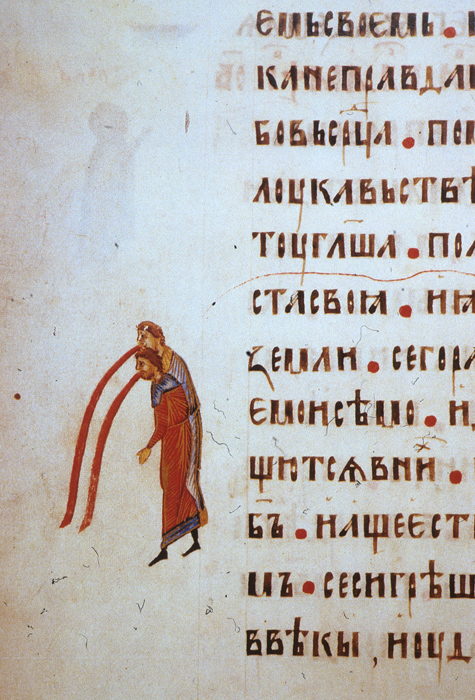 ємьсвоємь .
канеправда
бовьсрца . пом
лоукавьствѣ
тоуглаша . пол
стасвоꙗ . иꙗ
ꙁемли . сегора
ємоисѣмо . ид
щитсѧвни .
бъ . нашеест
мъ . сесигрѣш
ввѣкы , иоуд